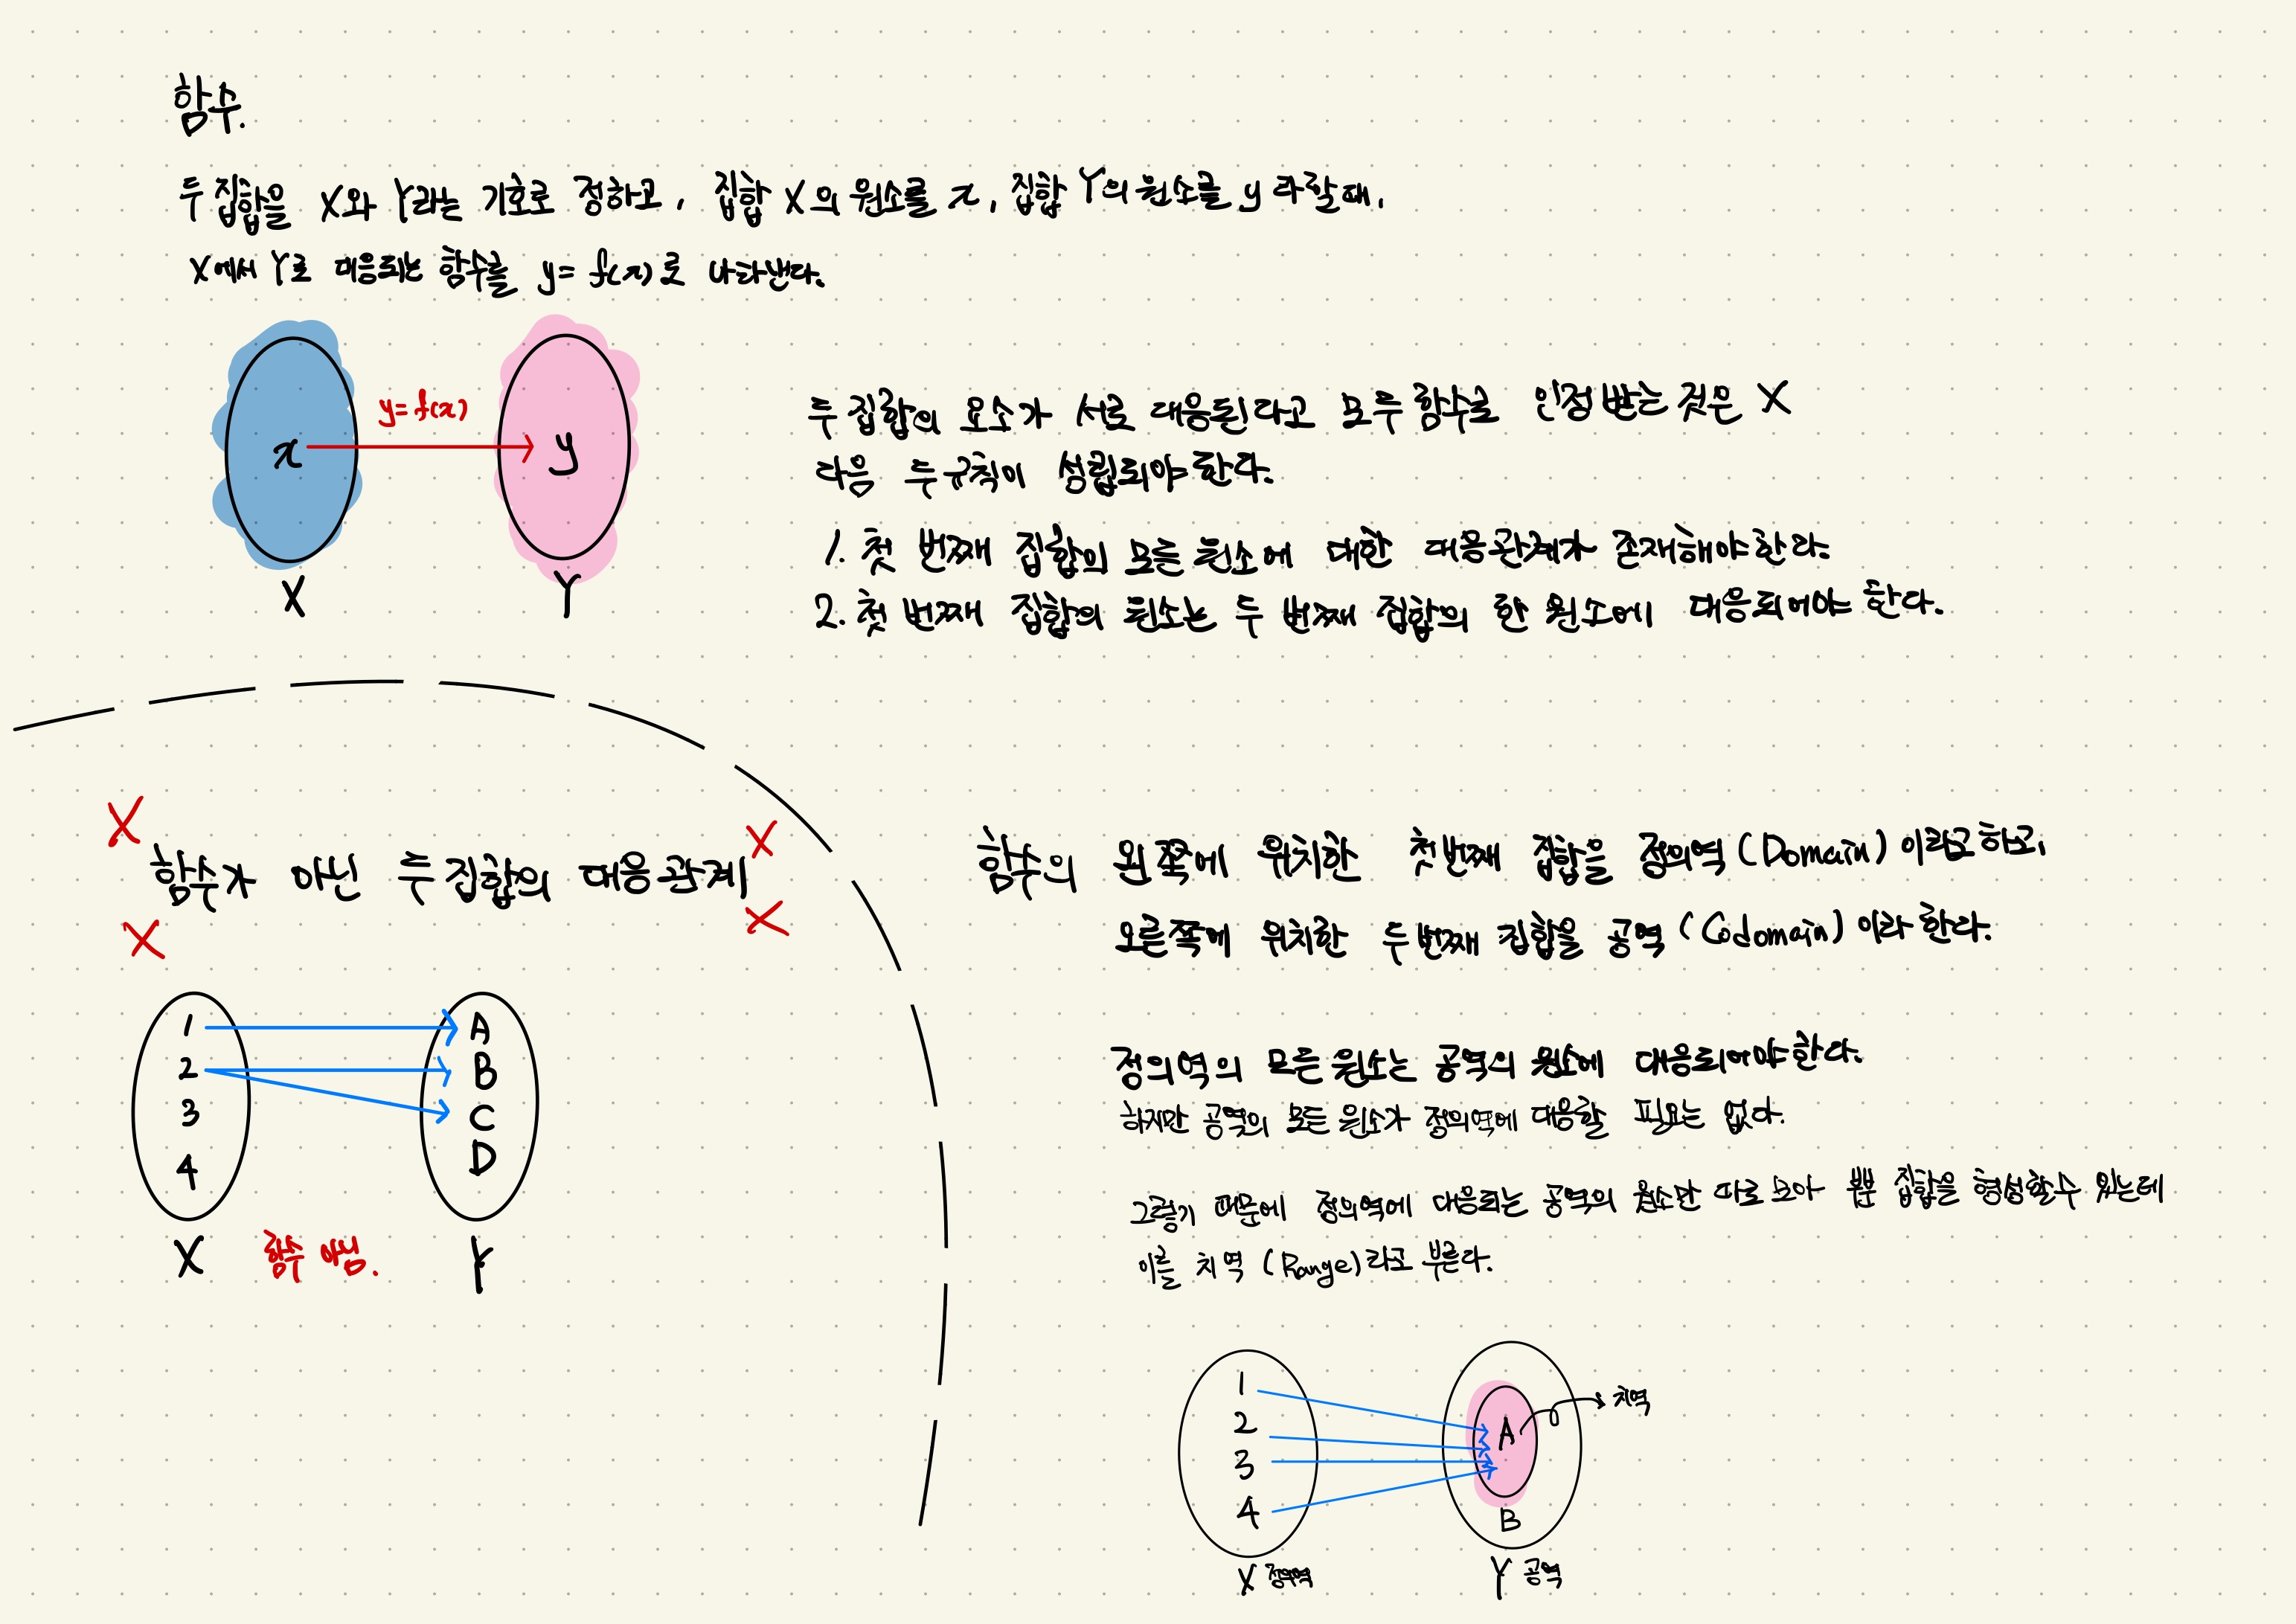 함수.
두 집합을 X와 Y라는 기호로 정하고, 집합 X의 원소를 x, 집합 Y의 원소를 y 라할때,
X에서 Y로 대응되는 함수를 y= f(x)로 나타낸다.
y=f(x)
x
y
X
Y
두 집합의 요소가 서로 대응된다고 모두 함수로 인정 받는 것은 X
다음 두 규칙이 성립되야 한다.
1. 첫 번째 집합의 모든 원소에 대한 대응관계가 존재해야한다.
2. 첫 번째 집합의 원소는 두 번째 집합의 한 원소에 대응되어야 한다.
X
X
함수가 아닌 두 집합의 대응관계
X
X
1
2
3
4
A
B
C
D
X
함수 아님.
Y
함수의 왼쪽에 위치한 첫번째 집합을 정의역 (Domain) 이라고하고,
오른쪽에 위치한 두번째 집합을 공역 (Codomain) 이라 한다.
정의역의 모든 원소는 공역의 원소에 대응되어야한다.
하지만 공역의 모든 원소가 정의역에 대응할 필요는 없다.
그렇기 때문에 정의역에 대응되는 공역의 원소만 따로 모아 집합을 형성할수 있는데
이를 치역 (Range)라고 부른다.
1
2
3
4
A
B
치역
X 정의역
Y 공역